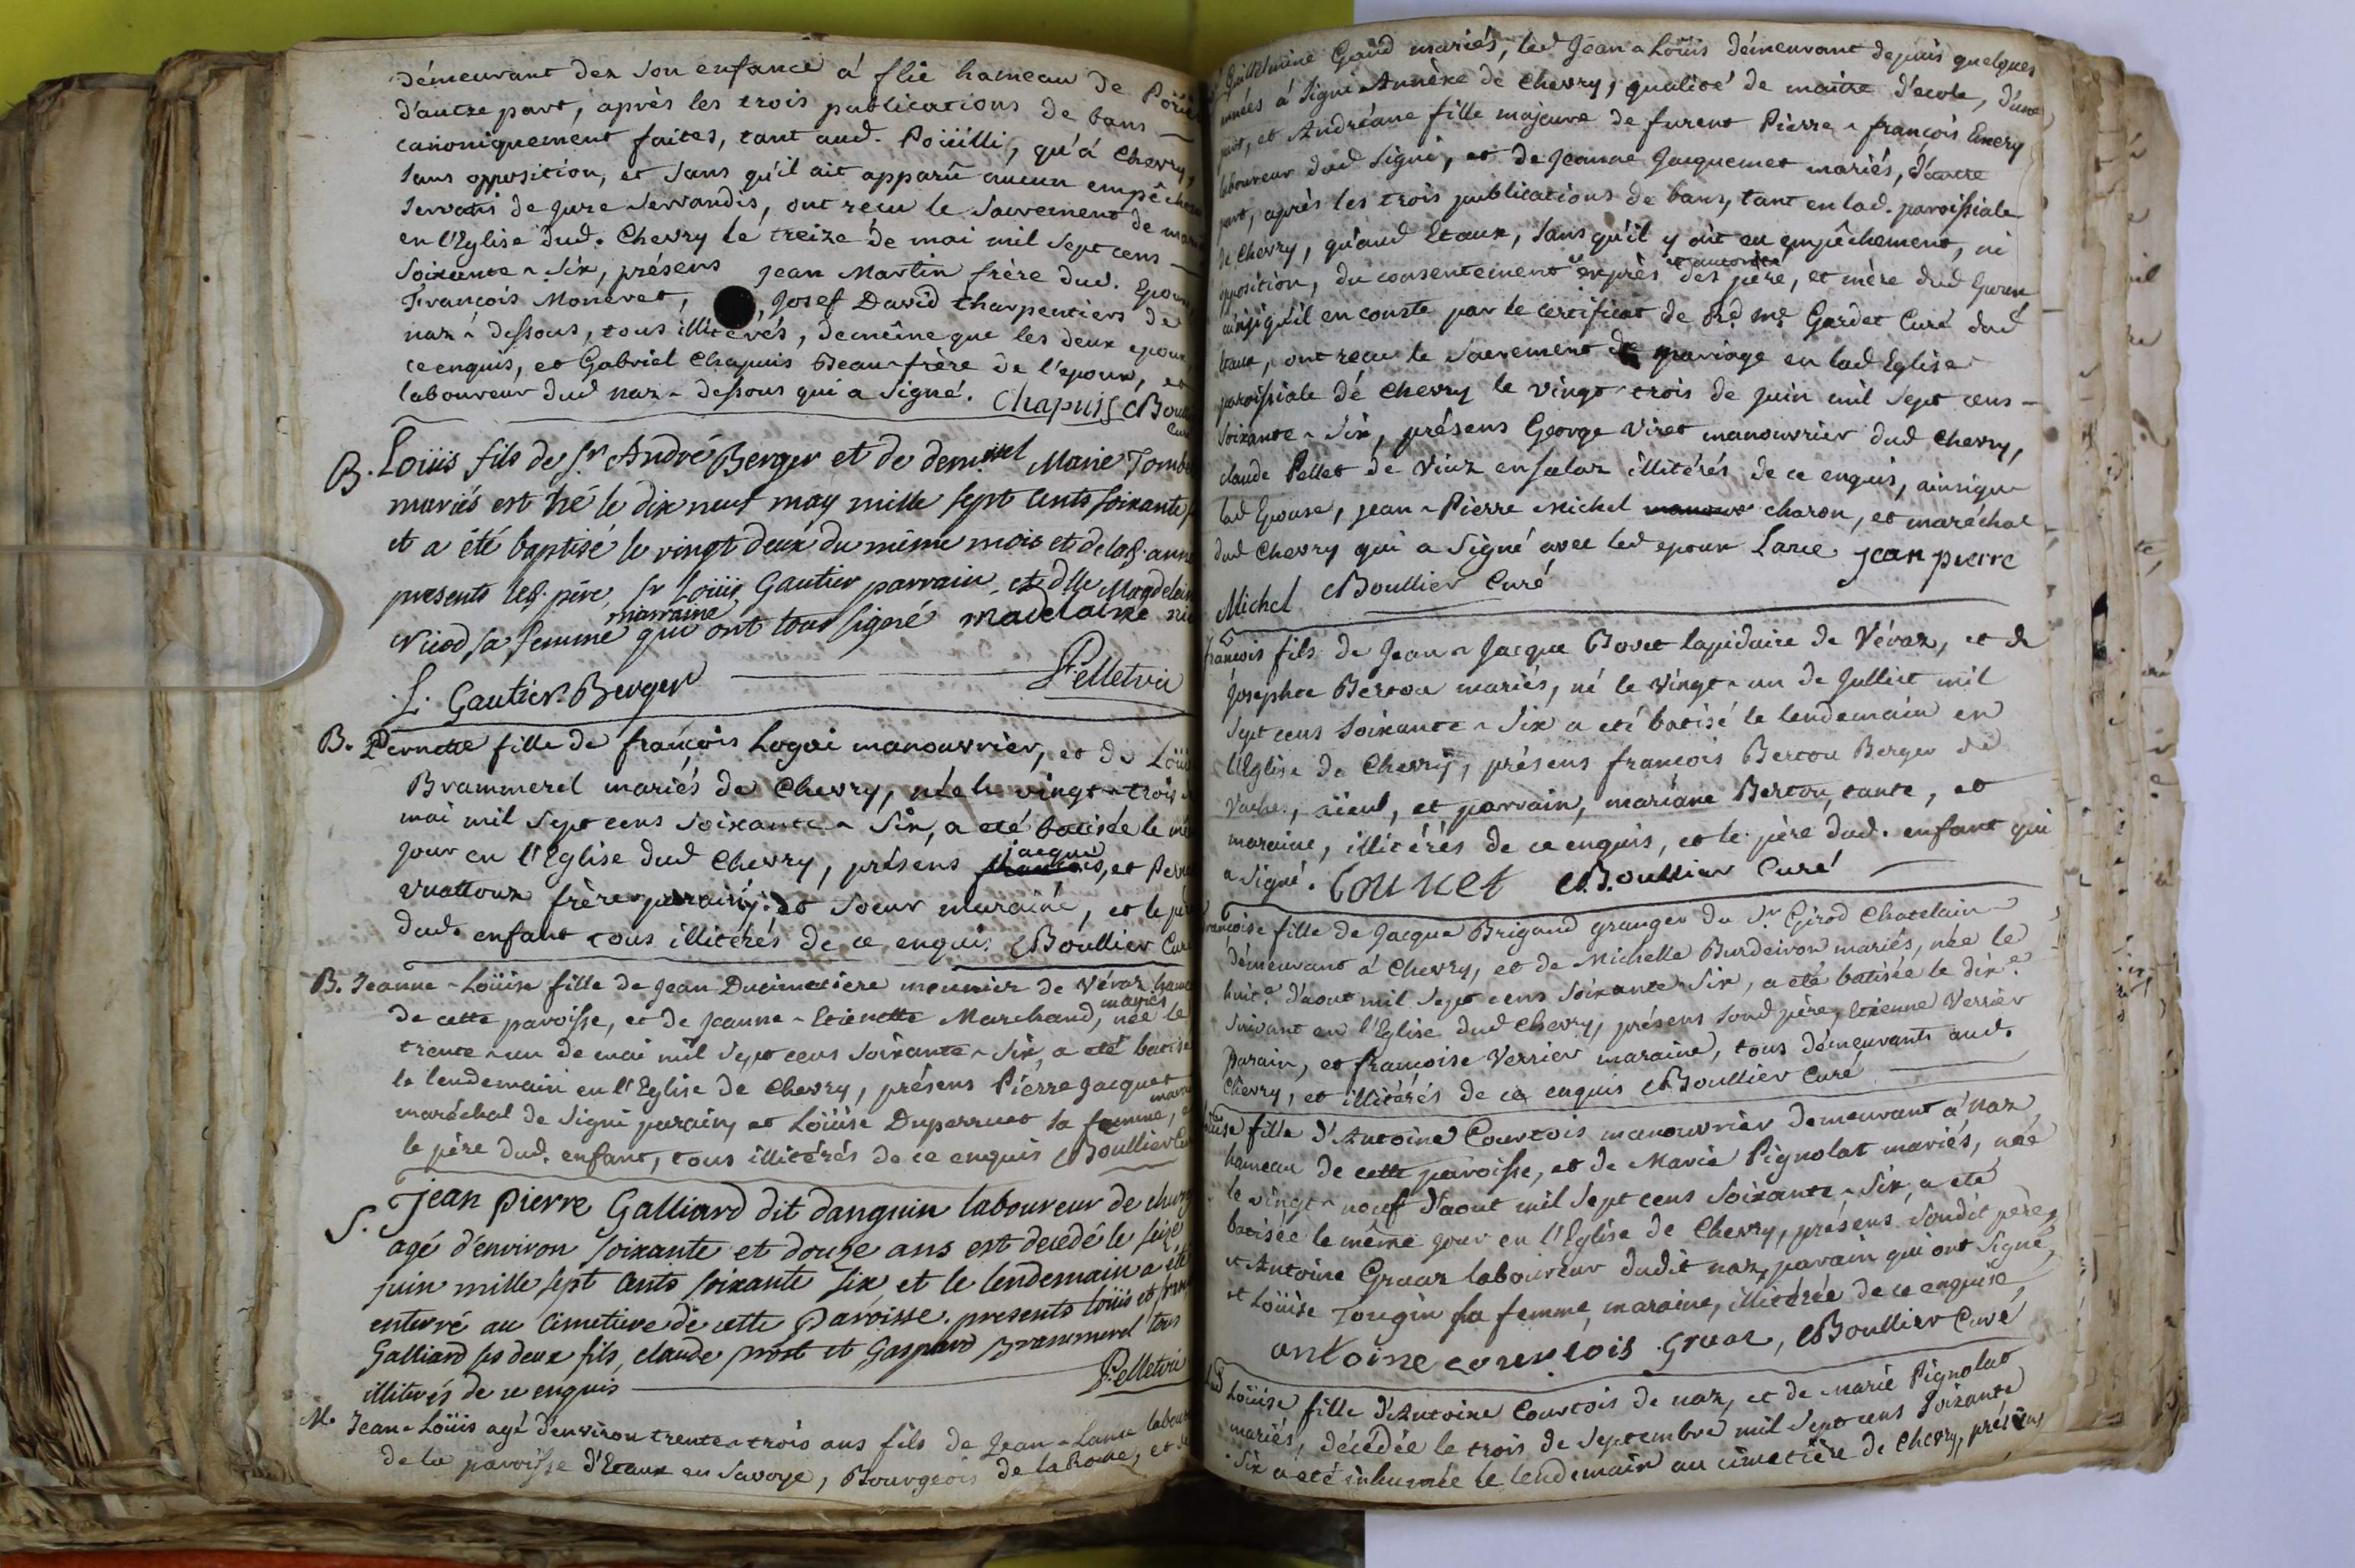 démeurant dez son enfance á flie hameau de
d'autre part, après les trois publications de bans
canoniquement faites, tant aud. Poüilli, qu'á Chevry,
sans opposition, et sans qu'il ait apparû aucun empêche
servatis de jure servandis, ont reçu le sacrement de mar
en l'Eglise dud. Chevry le treize de mai mil sept cens
soixante-six, présens Jean Martin frère dud. Epoux
François Moneret, , Josef David Charpentiers de
naz-dessous, tous illiterés, demême que les deux epoux
ce enquis, et Gabriel Chapuis Beau-frère de l'epoux, et
laboureur dud naz-dessous qui a signé. Chapuis
B. Loüis fils de sr André Berger et de demlle Marie
mariés est né le dix neuf may mille sept cents soixante
et a été baptisé le vingt deux du même mois et de lad. anné
presents led. père, sr Loüis Gautier parrain, et dlle Magdelain
Nicod sa femme marraine qui ont tous signé madelaine
L. Gautier Berger Pelletrie
B. Pernette fille de françois Logoi manouvrier, et de
Brammerel mariés de Chevry, née le vingt-trois
mai mil sept cens soixante-six, a eté batisée le
jour en l'Eglise dud Chevry, présens jacque, et
Vuattoux frère parain, et soeur maraine, et le
dud. enfant tous illitérés de ce enquis Boullier Curé
B. Jeanne-Loüise fille de Jean Ducimetiere meunier de Véraz
de cette paroisse, et de Jeanne-Etienette Marchand, mariés née le
trente-un de mai mil sept cens soixante-six, a eté batisé
le lendemain en l'Eglise de Chevry, présens Pierre Jacquet
maréchal de Signi parain, et Loüise Duperruet sa femme,
le père dud. enfant, tous illitérés de ce enquis Boullier
S. Jean Pierre Galliard dit danguin laboureur de
agé d'environ soixante et douze ans est decedé le seize
juin mille sept cents soixante six et le lendemain a été
enterré au cimetiere de cette Paroisse. presents loüis et
Galliard ses deux fils, claude prost et Gaspard Brammerel tous
illiterés de ce enquis Pelletrie
M. Jean-Loüis agé d'environ trente-trois ans fils de Jean-Larue
de la paroisse d'Etaux en Savoye, Bourgeois de la Roche, et
Guillelmine Gaud mariés, led Jean-Loüis démeurant depuis quelques
nnées á Signi Annèxe de Chevry, qualité de maitre d'ecole, d'une
part, et Andréane fille majeure de furent Pierre-françois Emery
laboureur dud Signi, et de Jeanne Jacquemet mariés, d'autre
part, après les trois publications de bans, tant en lad. paroissiale
de Chevry, qu'aud Etaux, sans qu'il y ait eu empêchement, ni
opposition, du consentement exprès et autorité des père, et mère dud Epoux
ainsi qu'il en conste par le certificat de Rd. me. Gardet Curé dud
Etaux, ont reçu le sacrement de mariage en lad Eglise
paroissiale dé Chevry le vingt-trois de juin mil sept cens
soixante-six, présens George Viret manouvrier dud Chevry,
claude Pellet de illitérés de ce enquis, ainsique
lad Epouse, jean-Pierre Michel charon, et maréchal
dud Chevry qui a signé avec led epoux Larue jean pierre
Michel Boullier Curé
françois fils de Jean-Jacque Bovet lapidaire de Véraz, et de
Josephte Bertou mariés, né le vingt-un de Julliet mil
sept cens soixante-six a eté batisé le lendemain en
l'Eglise de Chevry, présens françois Bertou Berger de
vaches, aïeul, et parrain, mariane Bertou, tante, et
maraine, illitérés de ce enquis, et le père dud. enfant qui
a signé. Boullier Curé
françoise fille de Jacque Brigand granger du Sr Girod Chatelain
démeurant á Chevry, et de Michelle Burdeiron mariés, née le
huit.e d'aout mil sept cens soixante-six, a eté batisée le dix.e
suivant en l'Eglise dud Chevry, présens soud père, Etienne Verrier
Parain, et françoise Verrier maraine, tous démeurants aud.
Chevry, et illitérés de ce enquis Boullier Curé
Loüise fille d'Antoine Courtois manouvrier demeurant á Naz
hameau de cette paroisse, et de Marie Pignolat mariés, née
le vingt-neuf d'aout mil sept cens soixante-six, a eté
batisée le même jour en l'Eglise de Chevry, présens soudit père,
et Antoine Gruaz laboureur dudit naz, parain qui ont signé,
et Loüise Tougin sa femme, maraine, illitérée de ce enquise,
antoine courtois Gruaz, Boullier Curé
Loüise fille d'Antoine Courtois de naz, et de marie Pignolat
mariés, décédée le trois de septembre mil sept cens soixante
-six a eté inhumée le lendemain au cimetière de Chevry, présens